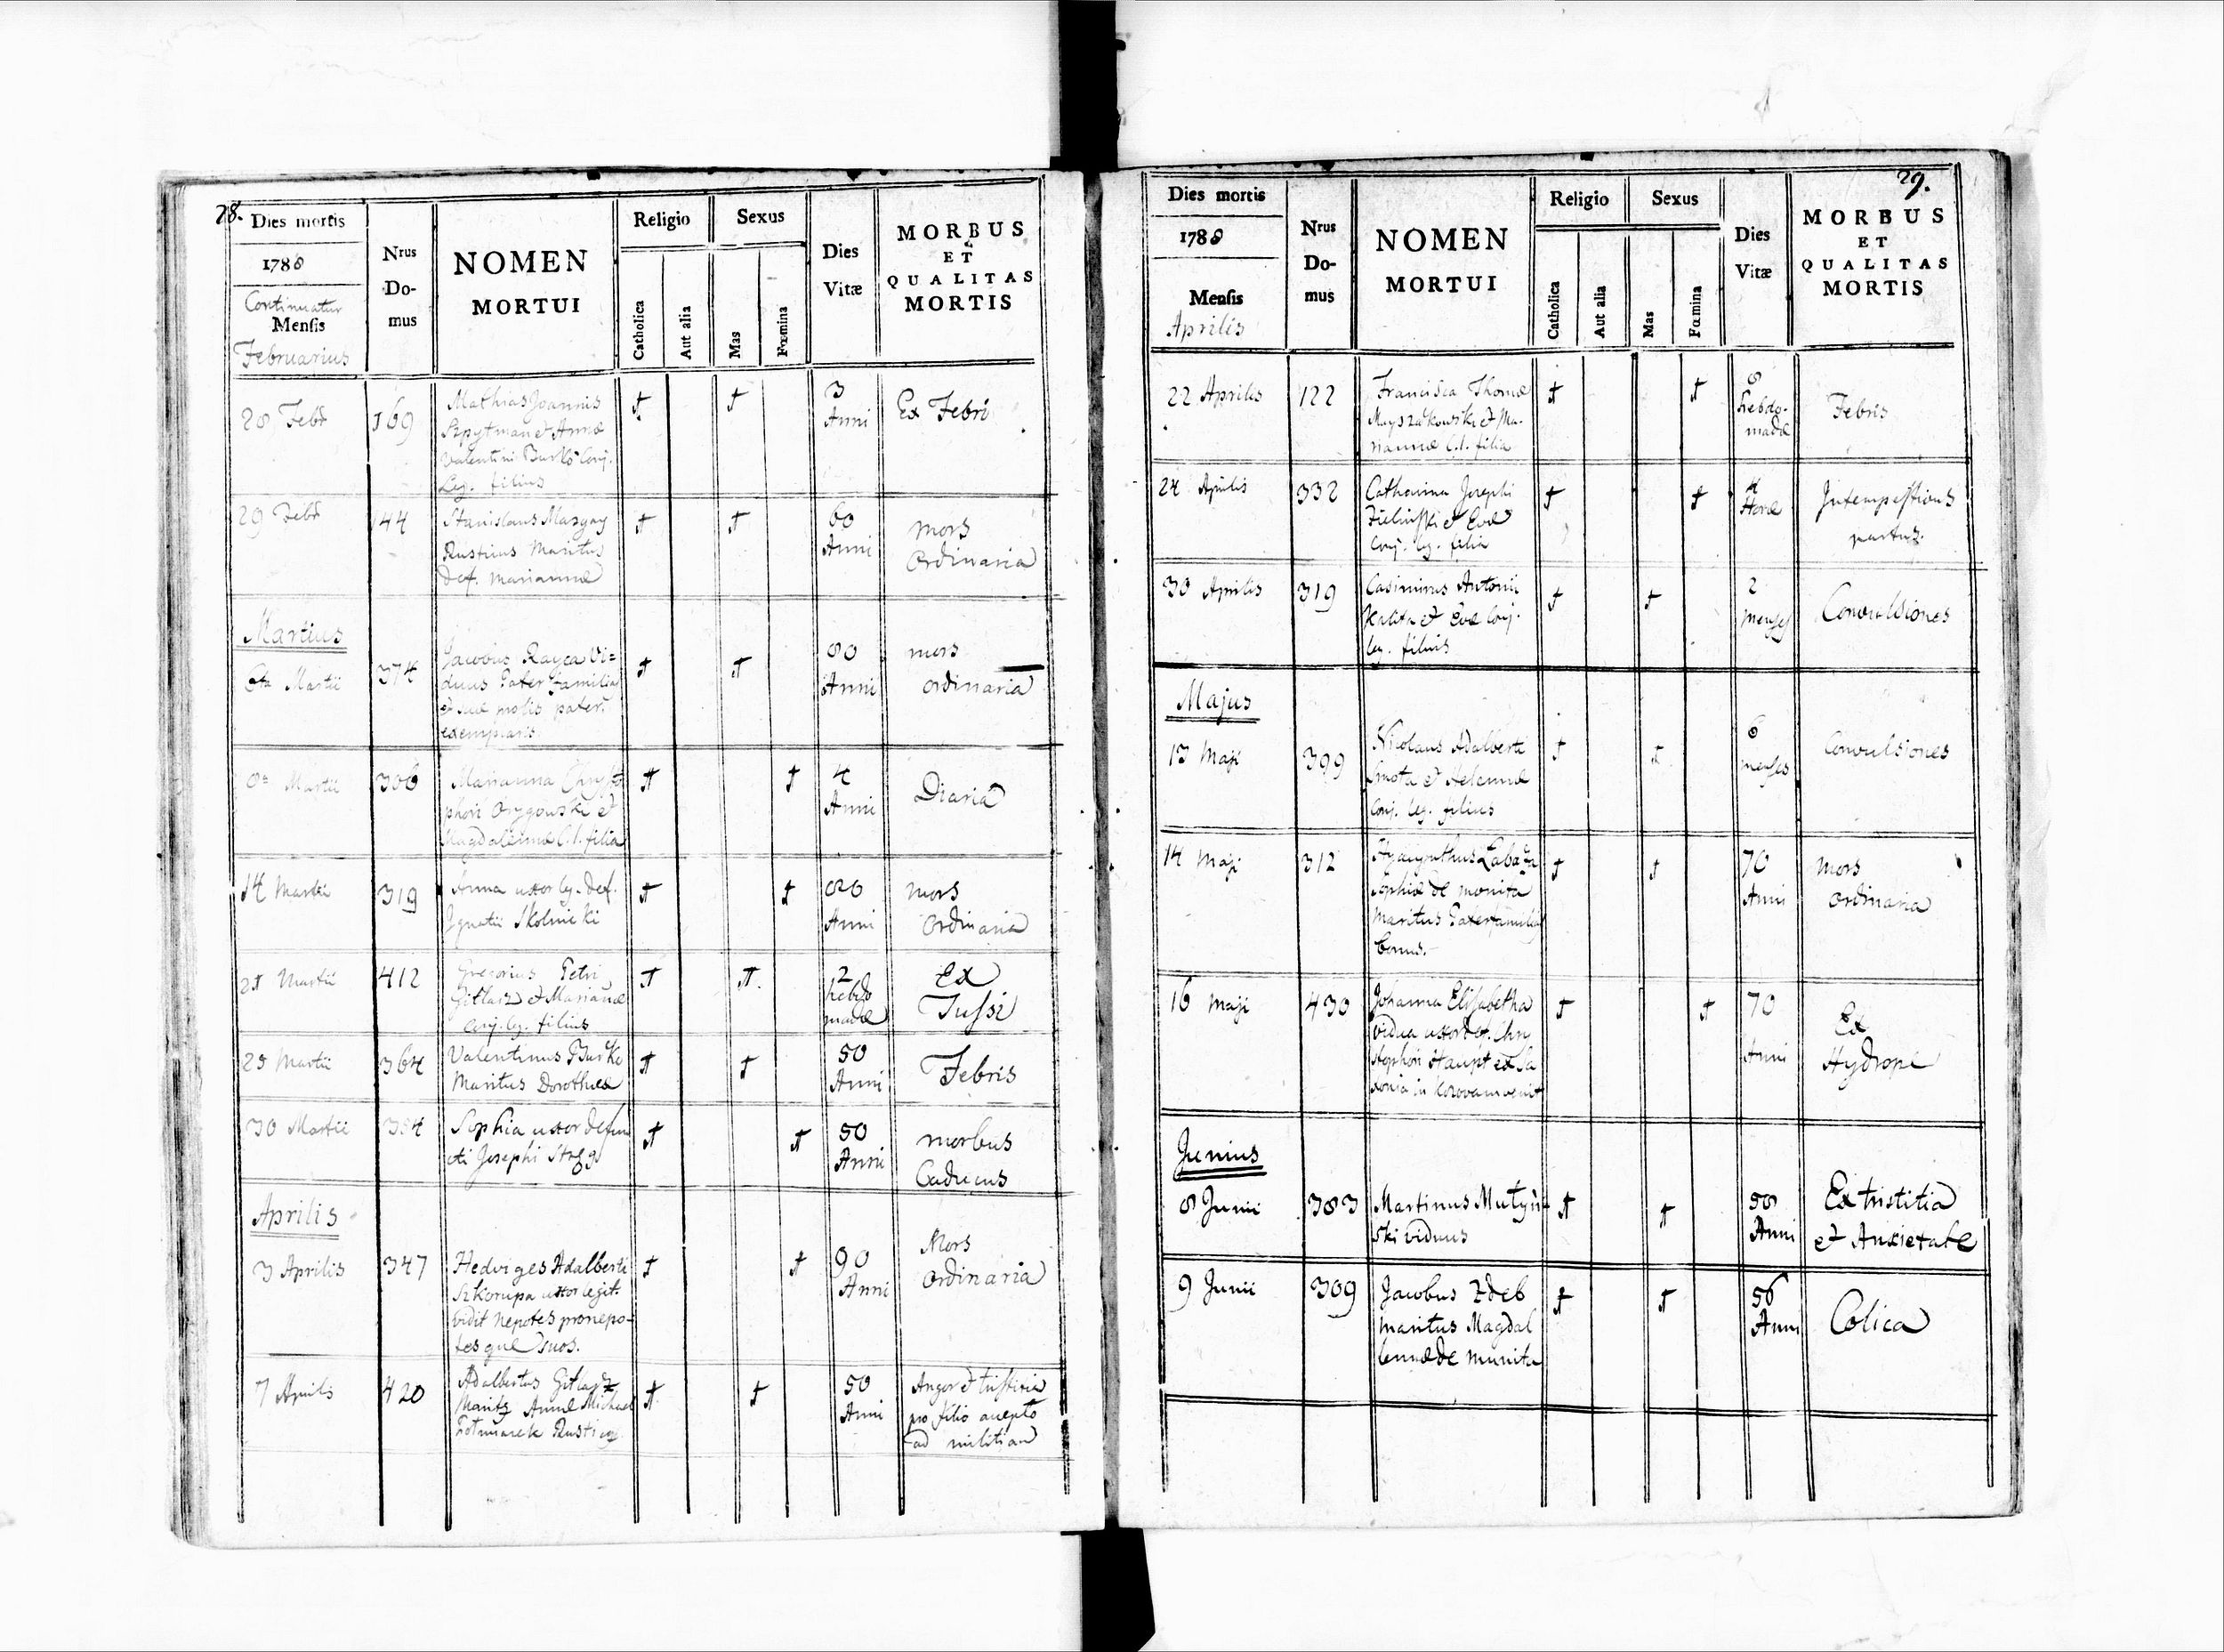 28.
Dies mortis
1788
Continuatur
Mensis
Februarius
Nrus
Do-
mus
NOMEN
MORTUI
Religio
Catholica
Aut alia
Sexus
Mas
Fœmina
Dies
Vitæ
MORBUS
ET
QUALITAS
MORTIS
28 Febr
169
Mathias Joannis
Szpytman et Annæ
Valentini Burko Conj.
Leg. filius
3
Anni
Ex Febri
29 Febr
144
Stanislaus Mazgay
Rusticus Maritus
Def. Mariannæ
60
Anni
Mors
Ordinaria
Martius
Martii
374
Jacobus Rayca Vi=
duus Pater Familiæ
et suæ prolis pater
exemplaris
80
Anni
mors
ordinaria
8a Martii
306
Marianna Chrysto
phori Orygowski et
Magdalenæ C. l. filia
4
Anni
Diaria
14 Martii
319
Anna uxor leg. Def.
Ignatii Skolnicki
Anni
mors
Ordinaria
Martii
412
Gregorius Petri
Gitlarz et Mariannæ
Conj. leg. filius
2
hebdo
madæ
Ex
Tussi
Martii
364
Valentinus Burko
Maritus Dorotheæ
50
Anni
Febris
30 Martii
Sophia uxor defun
cti Josephi
50
Anni
morbus
Caducus
Aprilis
3 Aprilis
347
Hedviges Adalberti
Szkorupa uxor legit.
vidit nepotes pronepo-
tesque suos.
90
Anni
Mors
Ordinaria
7 Aprilis
420
Adalbertus Gitlarz
Marit9 Annæ Michael
Rustic9
50
Anni
Angor et tristitia
pro filio accepto
ad militiam
29.
Dies mortis
1788
Mensis
Aprilis
Nrus
Do-
mus
NOMEN
MORTUI
Religio
Catholica
Aut alia
Sexus
Mas
Fœmina
Dies
Vitæ
MORBUS
ET
QUALITAS
MORTIS
22 Aprilis
122
Francisca Thomæ
Mayszakowski et Ma-
riannæ C. l. filia
8
Hebdo-
madæ
Febris
24 Aprilis
332
Catharina Josephi
Zielinski et Evæ
Conj. leg. filia
4
Horæ
Intempestivus
partus.
30 Aprilis
319
Casimirus Antonii
Kalita et Evæ Conj.
leg. filius
2
menses
Convulsiones
Majus
13 Maji
399
Nicolaus Adalberti
et Helenæ
Conj. leg. filius
6
menses
Convulsiones
14 Maji
312
Hyacynthus
Sophiæ de Monita
Maritus Paterfamilias
bonus.
70
Anni
Mors
Ordinaria
16 Maji
430
Johanna Elisabetha
vidua uxor def. Chry
stophori Haupt ex Sa
xonia in
70
Anni
Ex
Hydrope
Junius
8 Junii
383
Martinus Mutyń-
ski viduus
58
Anni
Ex tristitia
et Anxietate
9 Junii
309
Jacobus Zdeb
maritus Magdal
lennæ de Munita
56
Anni
Colica